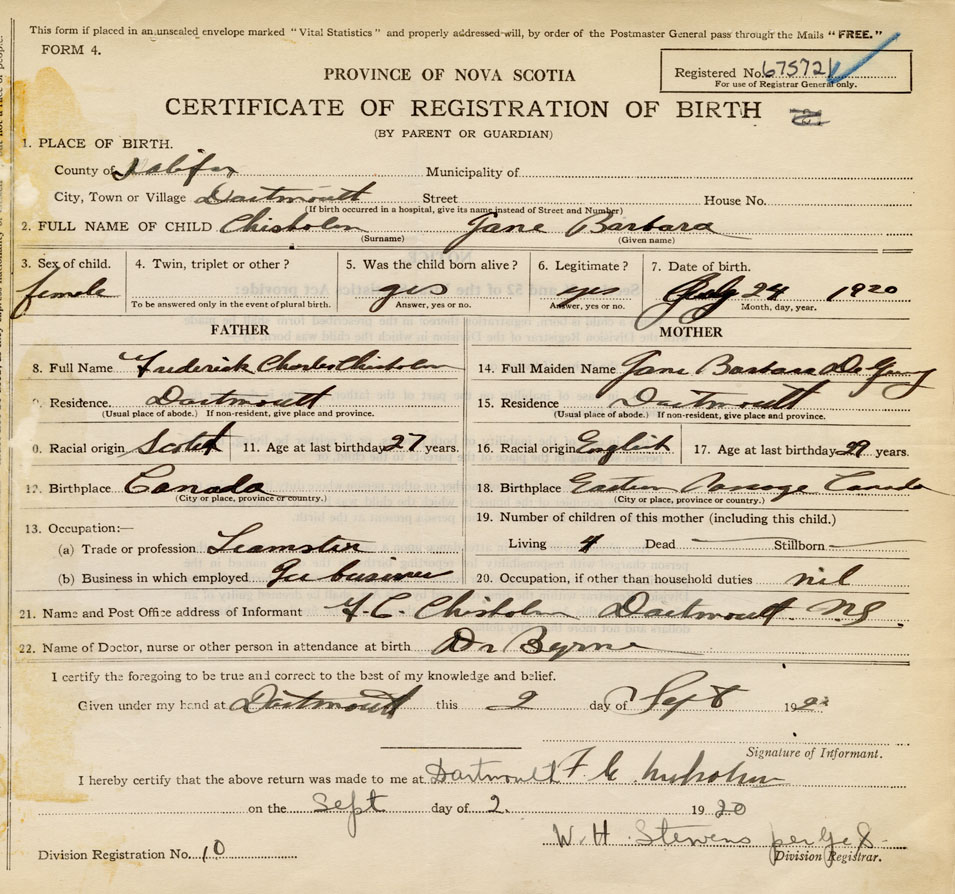 This form if placed in an unsealed envelope marked "Vital Statistics" and properly addressed will, by order of the Postmaster General pass through the Mails "FREE."
FORM 4.
Registered No. 67572
For use of Registrar General only.
PROVINCE OF NOVA SCOTIA
CERTIFICATE OF REGISTRATION OF BIRTH
(BY PARENT OR GUARDIAN)
1. PLACE OF BIRTH.
County of Halifax Municipality of
City, Town or Village Dartmouth Street House No.
(If birth occurred in a hospital, give its name instead of Street and Number)
2. FULL NAME OF CHILD Chisholm Jane Barbara
(Surname) (Given name)
3. Sex of child. 4. Twin, triplet or other? 5. Was the child born alive? 6. Legitimate? 7. Date of birth.
female yes yes July 24 1920
To be answered only in the event of plural birth. Answer, yes or no. Answer, yes or no. Month, day, year.
FATHER MOTHER
8. Full Name Frederick Charles Chisholm 14. Full Maiden Name Jane Barbara
Residence. Dartmouth 15. Residence Dartmouth
(Usual place of abode.) If non-resident, give place and province. (Usual place of abode.) If non-resident, give place and province.
0. Racial origin Scotch 11. Age at last birthday 27 years. 16. Racial origin English 17. Age at last birthday 29 years.
12. Birthplace Canada 18. Birthplace Eastern Passage Canada
(City or place, province or country.) (City or place, province or country.)
13. Occupation:— 19. Number of children of this mother (including this child.)
(a) Trade or profession Teamster Living 4 Dead — Stillborn —
(b) Business in which employed Ice business 20. Occupation, if other than household duties nil
21. Name and Post Office address of Informant F. C. Chisholm Dartmouth NS.
22. Name of Doctor, nurse or other person in attendance at birth Dr Byrne
I certify the foregoing to be true and correct to the best of my knowledge and belief.
Given under my hand at Dartmouth this 2 day of Sept 1920
Signature of Informant.
I hereby certify that the above return was made to me at Dartmouth F. C. Chisholm
on the Sept day of 2. 1920
W. H. Stevens per
Division Registration No. 10 Division Registrar.